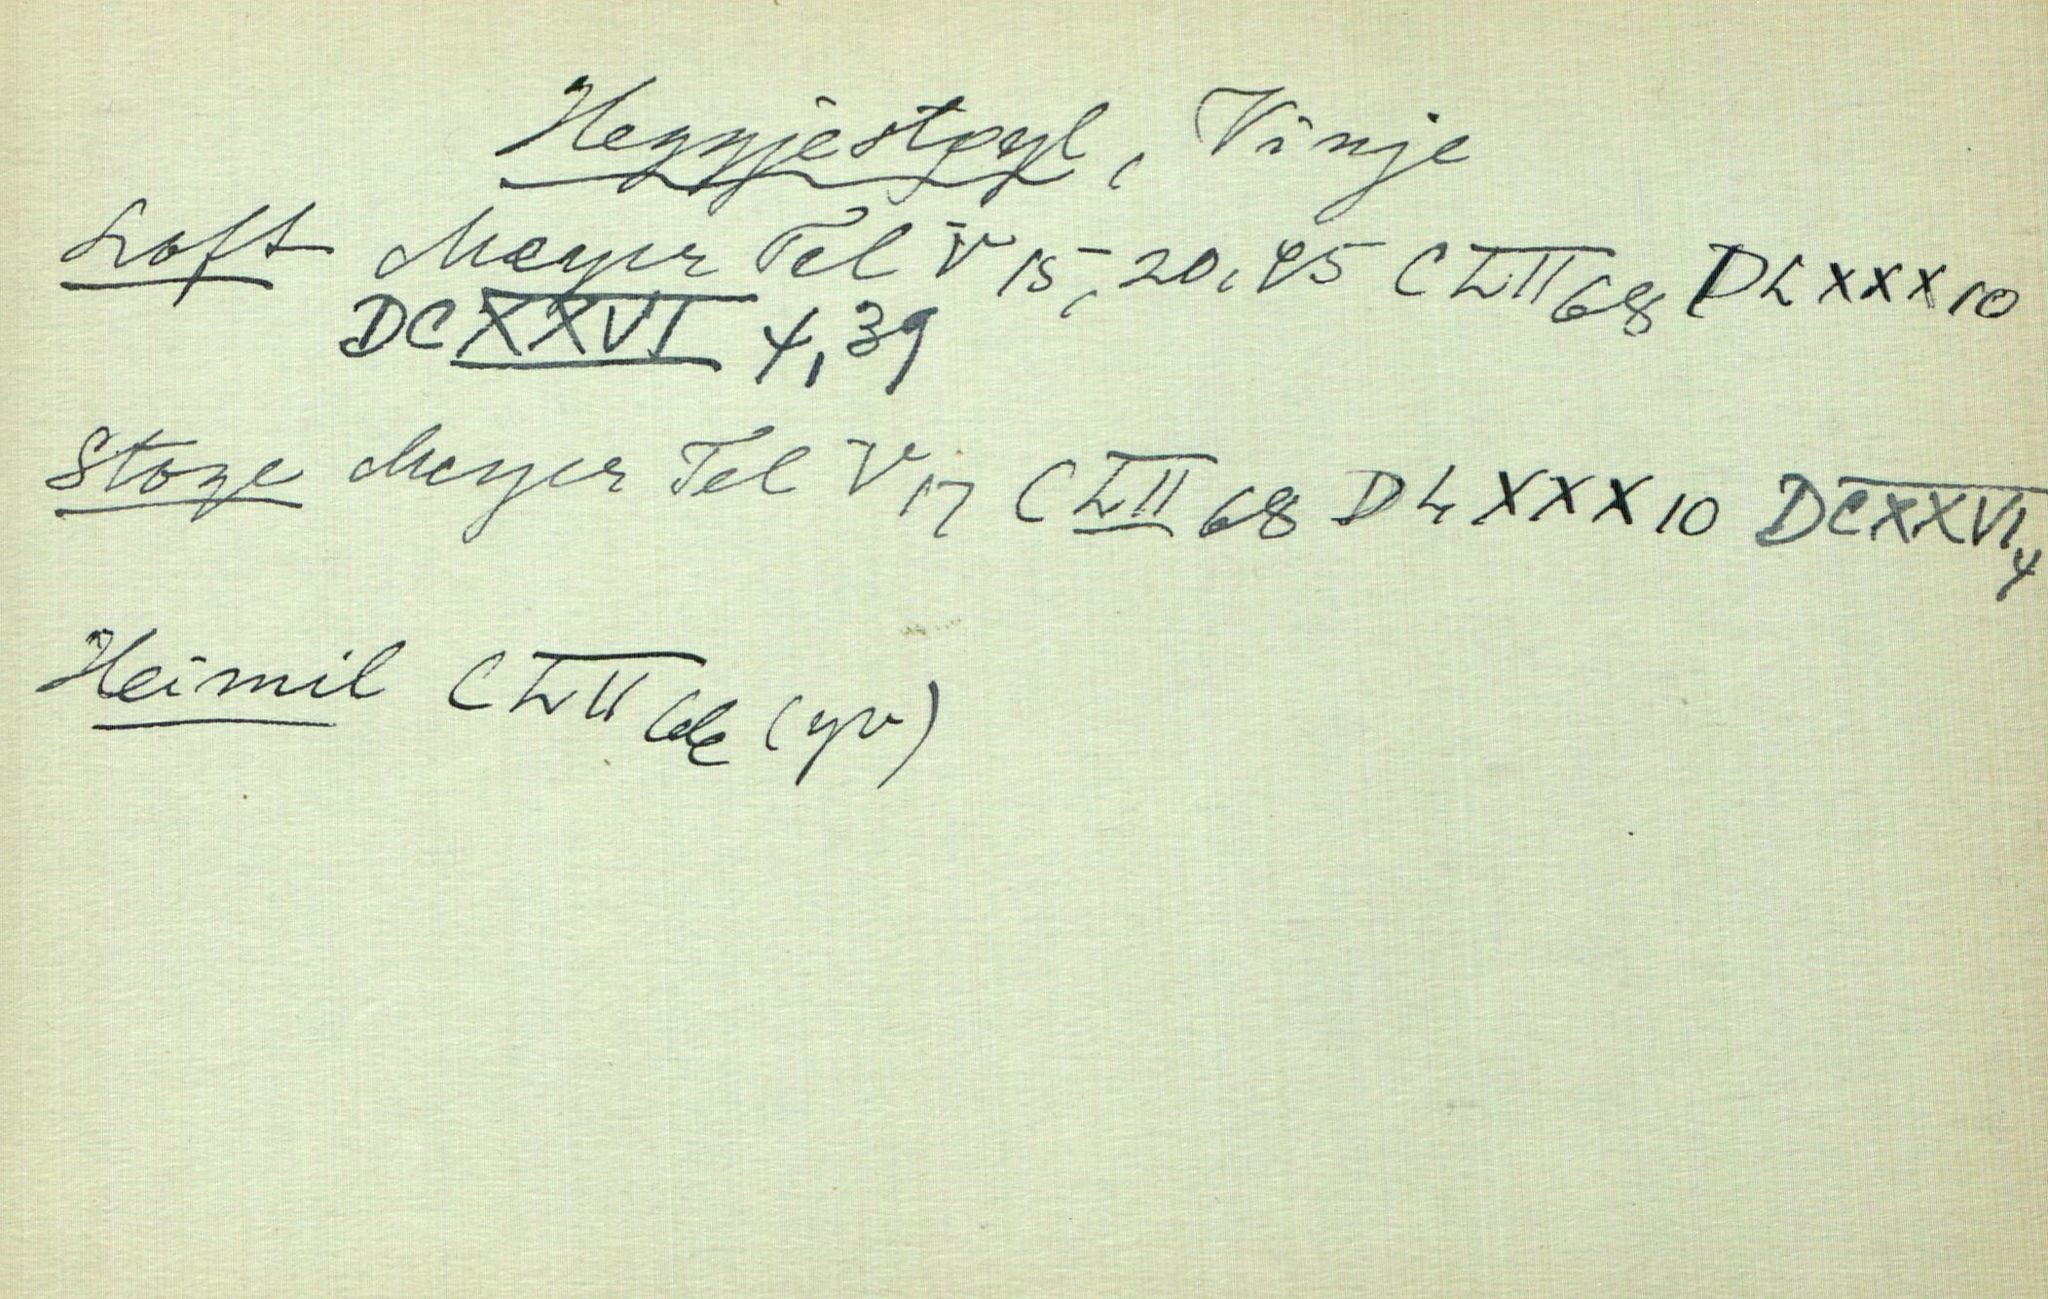 Heggjestøyl, Vinje
Loft Meyer Tel V 15, 20, 45 CLII 68 DLXXX 10
DCXXVI 4, 39
Stoge Meyer Tel V 17 CLII 68 DLXXX 10 DCXXVI 4
Heimil CLII (yv)